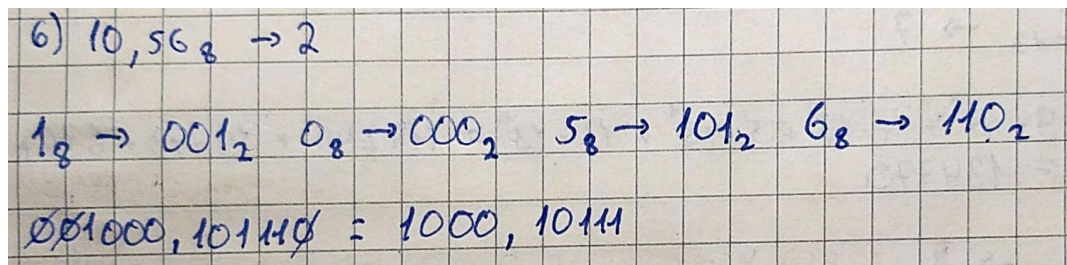 6) 10,56₈ → 2
1₈ → 001₂ 0₈ → 000₂ 5₈ → 101₂ 6₈ → 110₂
001000,101110 = 1000,10111